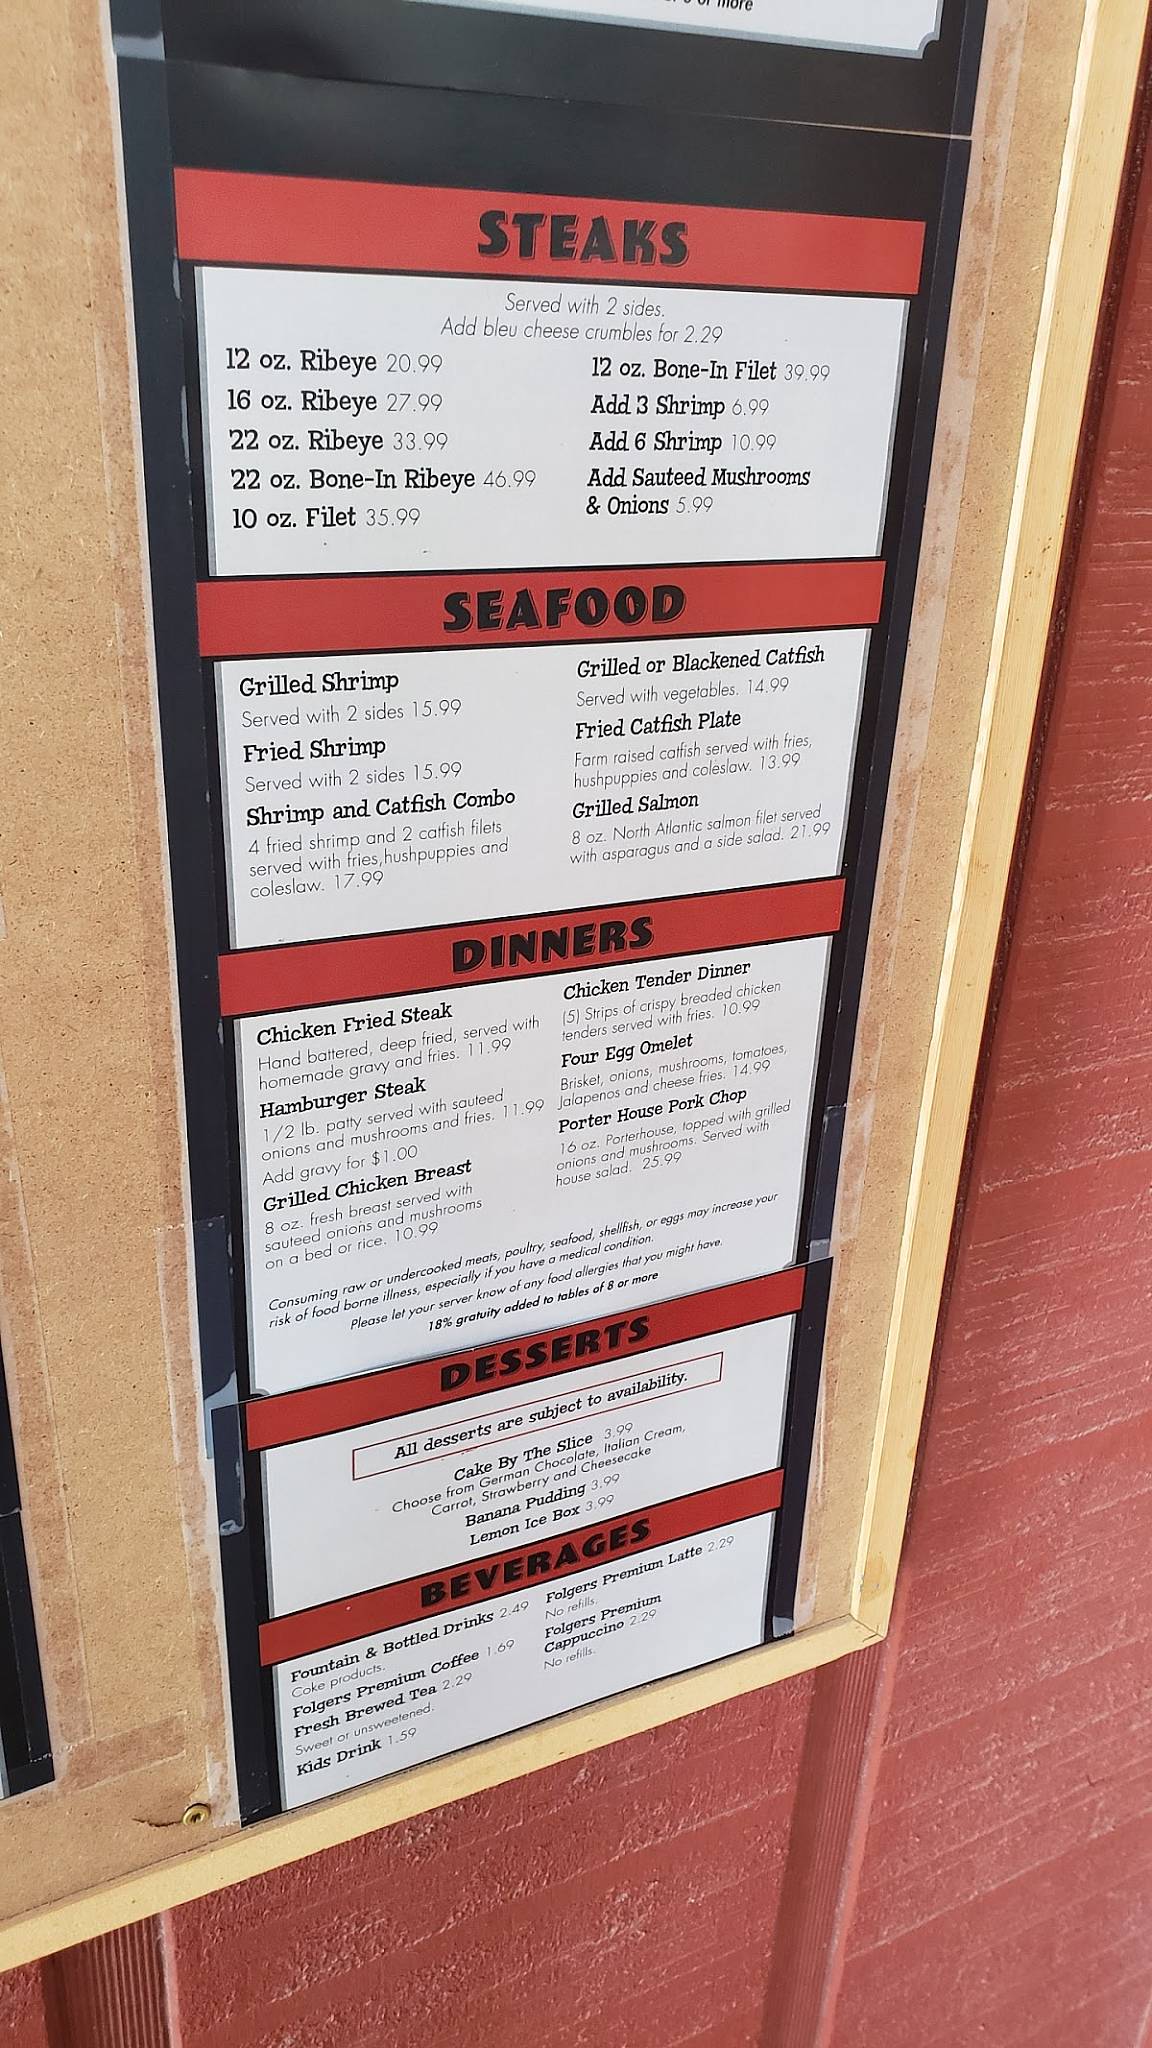 or more
STEAKS
Served with 2 sides.
Add bleu cheese crumbles for 2.29
12 oz. Ribeye 20.99
16 oz. Ribeye 27.99
22 oz. Ribeye 33.99
22 oz. Bone-In Ribeye 46.99
10 oz. Filet 35.99
12 oz. Bone-In Filet 39.99
Add 3 Shrimp 6.99
Add 6 Shrimp 10.99
Add Sauteed Mushrooms
& Onions 5.99
SEAFOOD
Grilled Shrimp
Served with 2 sides 15.99
Fried Shrimp
Served with 2 sides 15.99
Shrimp and Catfish Combo
4 fried shrimp and 2 catfish filets
served with fries,hushpuppies and
coleslaw. 17.99
Grilled or Blackened Catfish
Served with vegetables. 14.99
Fried Catfish Plate
Farm raised catfish served with fries,
hushpuppies and coleslaw. 13.99
Grilled Salmon
8 oz. North Atlantic salmon filet served
with asparagus and a side salad. 21.99
DINNERS
Chicken Fried Steak
Hand battered, deep fried, served with
homemade gravy and fries. 11.99
Hamburger Steak
1/2 lb. patty served with sauteed
onions and mushrooms and fries. 11.99
Add gravy for $1.00
Grilled Chicken Breast
8 oz. fresh breast served with
sauteed onions and mushrooms
on a bed or rice. 10.99
Chicken Tender Dinner
(5) Strips of crispy breaded chicken
tenders served with fries. 10.99
Four Egg Omelet
Brisket, onions, mushrooms, tomatoes,
Jalapenos and cheese fries. 14.99
Porter House Pork Chop
16 oz. Porterhouse, topped with grilled
onions and mushrooms. Served with
house salad. 25.99
Consuming raw or undercooked meats, poultry, seafood, shellfish, or eggs may increase your
risk of food borne illness, especially if you have a medical condition.
Please let your server know of any food allergies that you might have.
18% gratuity added to tables of 8 or more
DESSERTS
All desserts are subject to availability.
Cake By The Slice 3.99
Choose from German Chocolate, Italian Cream,
Carrot, Strawberry and Cheesecake
Banana Pudding 3.99
Lemon Ice Box 3.99
BEVERAGES
Fountain & Bottled Drinks 2.49
Coke products.
Folgers Premium Coffee 1.69
Fresh Brewed Tea 2.29
Sweet or unsweetened.
Kids Drink 1.59
Folgers Premium Latte 2.29
No refills.
Folgers Premium
Cappuccino 2.29
No refills.